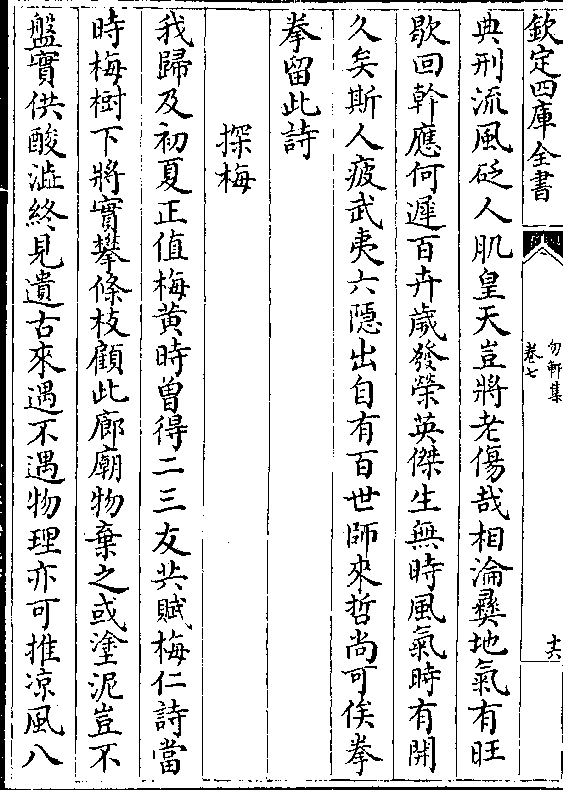 欽定四庫全書
勿軒集
卷七
十六
典刑流風砭人肌皇天豈將老傷哉相淪彝地氣有旺
歇回斡應何遲百卉歲發榮英傑生無時風氣時有開
久矣斯人疲武夷六隱出自有百世師來哲尚可俟拳
拳留此詩
探梅
我歸及初夏正值梅黄時曽得二三友共賦梅仁詩當
時梅樹下將實攀條枝顧此廊廟物棄之或塗泥豈不
盤實供酸澁終見遺古來遇不遇物理亦可推凉風八